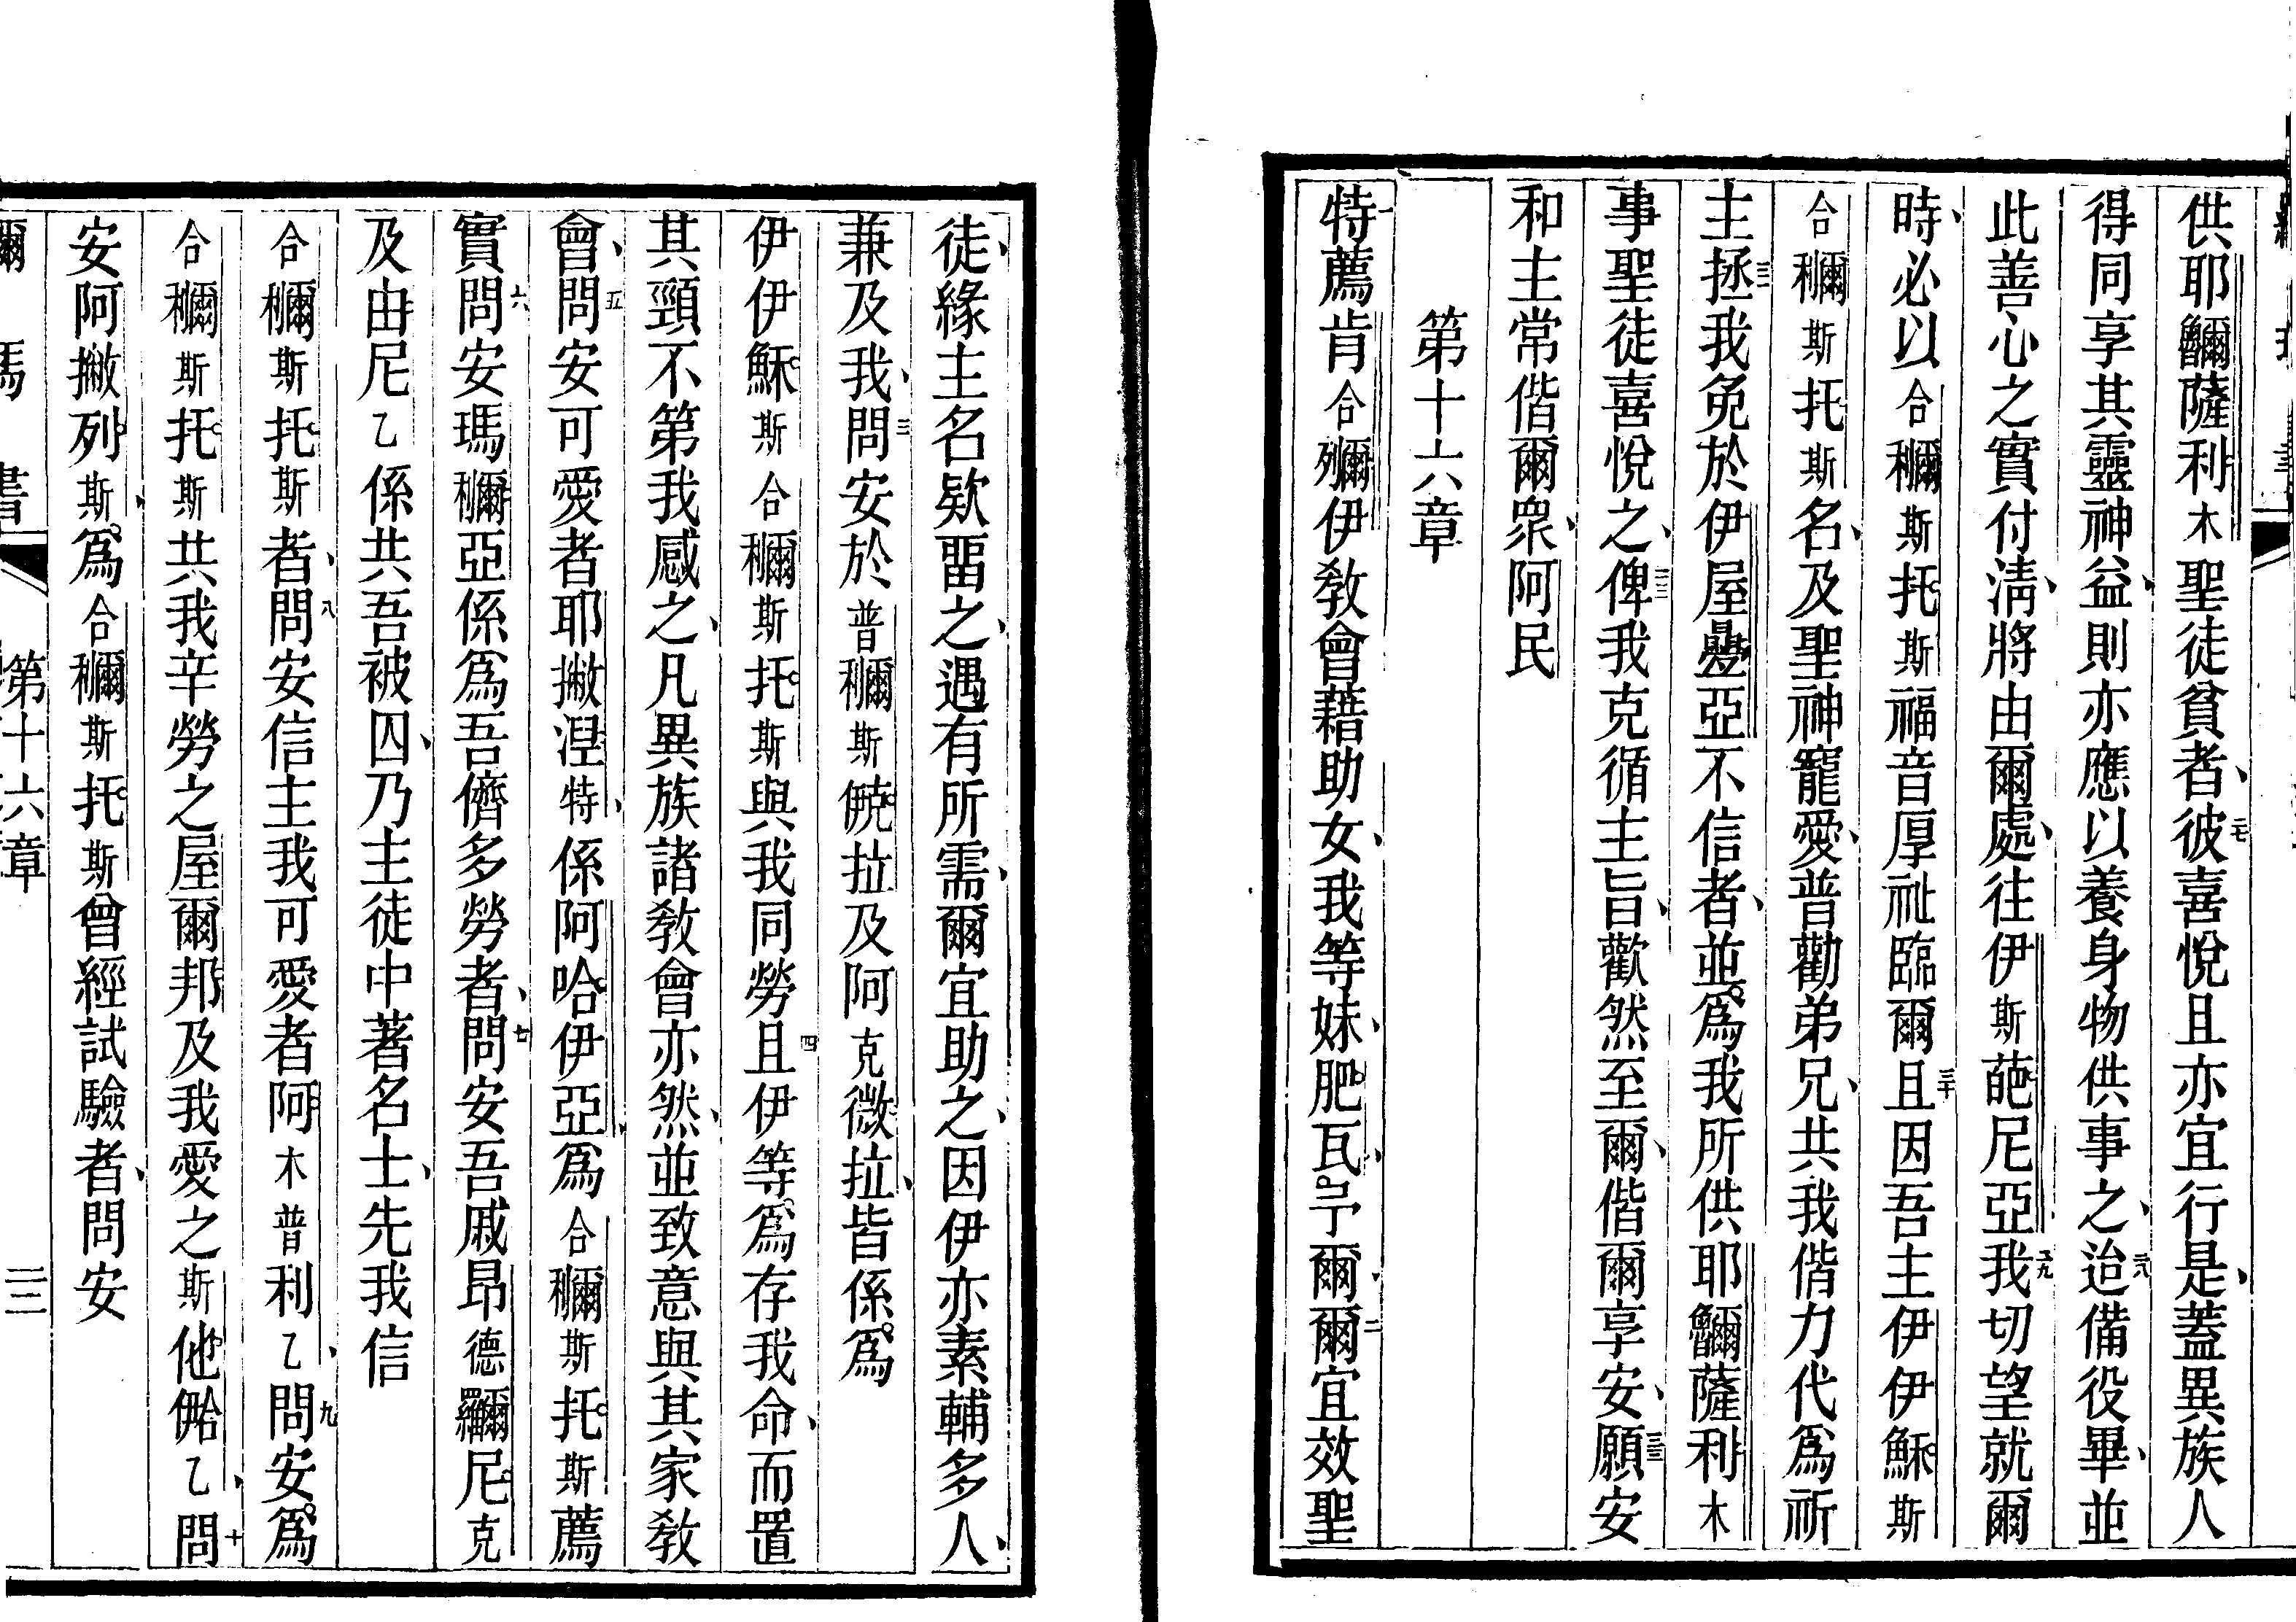 供耶𩧐薩利木聖徒貧者彼二七喜悅且亦宜行是蓋異族人
得同享其靈神益則亦應以養身物供事之迨二八備役畢並
此善心之實付淸將由爾處往伊斯葩尼亞我二九切望就爾
時必以合穪斯托斯福音厚祉臨爾且三十因吾主伊伊穌斯
合穪斯托斯名及聖神寵愛普勸弟兄共我偕力代爲祈
主拯三一我免於伊屋疊亞不信者並爲我所供耶薩利木
事聖徒喜悅之俾三二我克循主旨歡然至爾偕爾享安願三三安
和主常偕爾衆阿民
第十六章
特一薦肯合伊敎會藉助女我等妹肥瓦于爾爾二宜效聖
徒緣主名欵畱之遇有所需爾宜助之因伊亦素輔多人
兼及我問三安於普穪斯拉及阿克微拉皆係爲
伊伊穌斯合穪斯托斯與我同勞且四伊等爲存我命而置
其頸不第我感之凡異族諸敎會亦然並致意與其家敎
會問五安可愛者耶撇湼特係阿哈伊亞爲合穪斯托斯薦
實問六安瑪穪亞係爲吾儕多勞者問七安吾戚昂德尼克
及由尼乙係共吾被囚乃主徒中著名士先我信
合穪斯托斯者問八安信主我可愛者阿木普利乙問九安爲
合穪斯托斯共我辛勞之屋爾邦及我愛之斯他乙問十
安阿撇列斯爲合穪斯托斯曾經試驗者問安
第十六章
三二